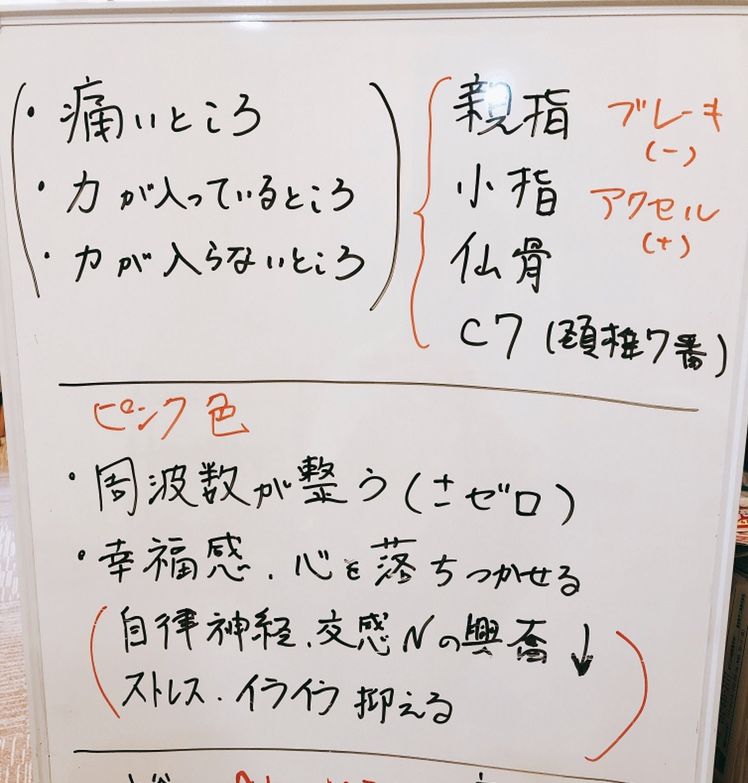 ・痛いところ
・力が入っているところ
・力が入らないところ
親指 ブレーキ
(−)
小指 アクセル
(+)
仙骨
C7 (頸椎7番)
ピンク色
・周波数が整う(±ゼロ)
・幸福感、心を落ちつかせる
自律神経、交感Nの興奮↓
ストレス・イライラ抑える